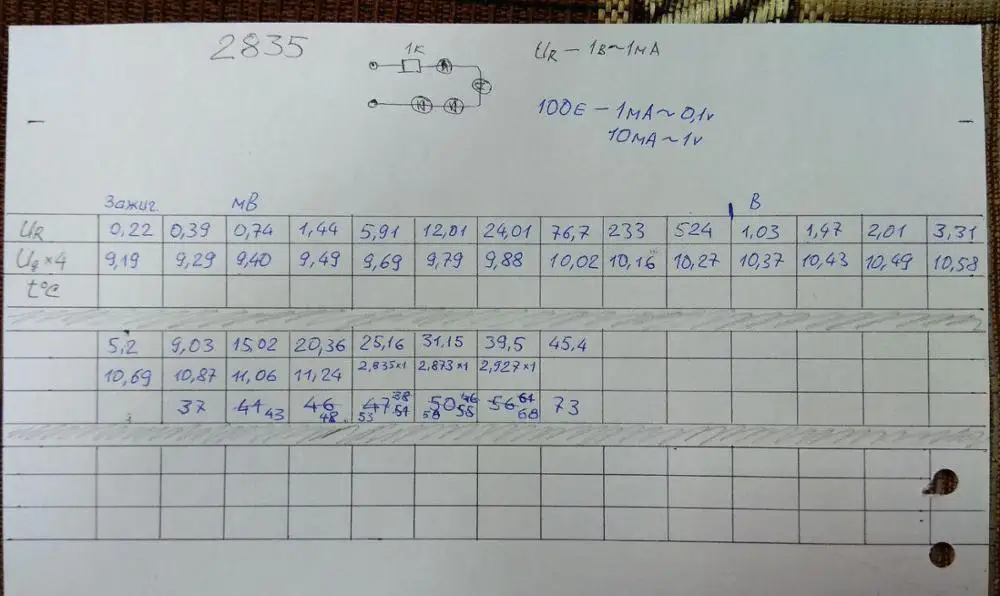 2835
1К
UR – 1В~1мА
100Е – 1мА~0,1v
10мА~1v
Зажиг. мВ В
UR 0,22 0,39 0,74 1,44 5,91 12,01 24,01 76,7 233 524 1,03 1,47 2,01 3,31
×4 9,19 9,29 9,40 9,49 9,69 9,79 9,88 10,02 10,16 10,27 10,37 10,43 10,49 10,58
t°C
5,2 9,03 15,02 20,36 25,16 31,15 39,5 45,4
10,69 10,87 11,06 11,24 2,835×1 2,873×1 2,927×1
37 41 43 46 48 47 53 50 55 56 68 73